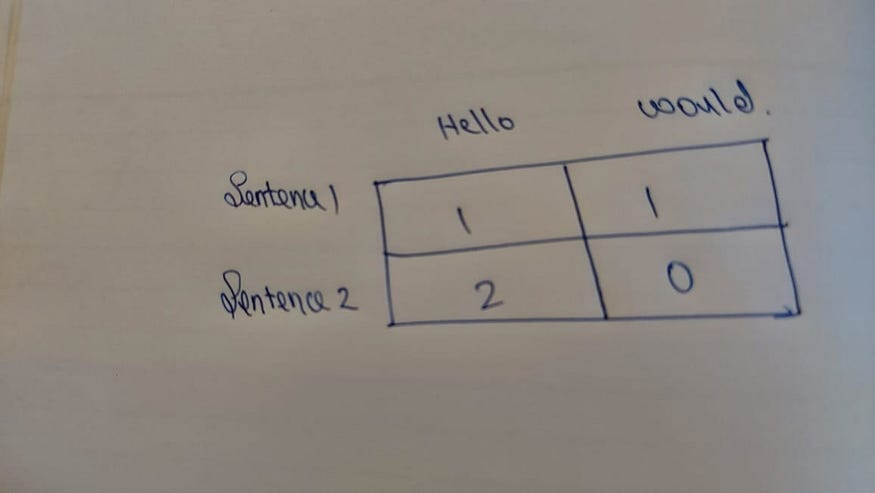 Hello would.
Sentence 1 1 1
Sentence 2 2 0